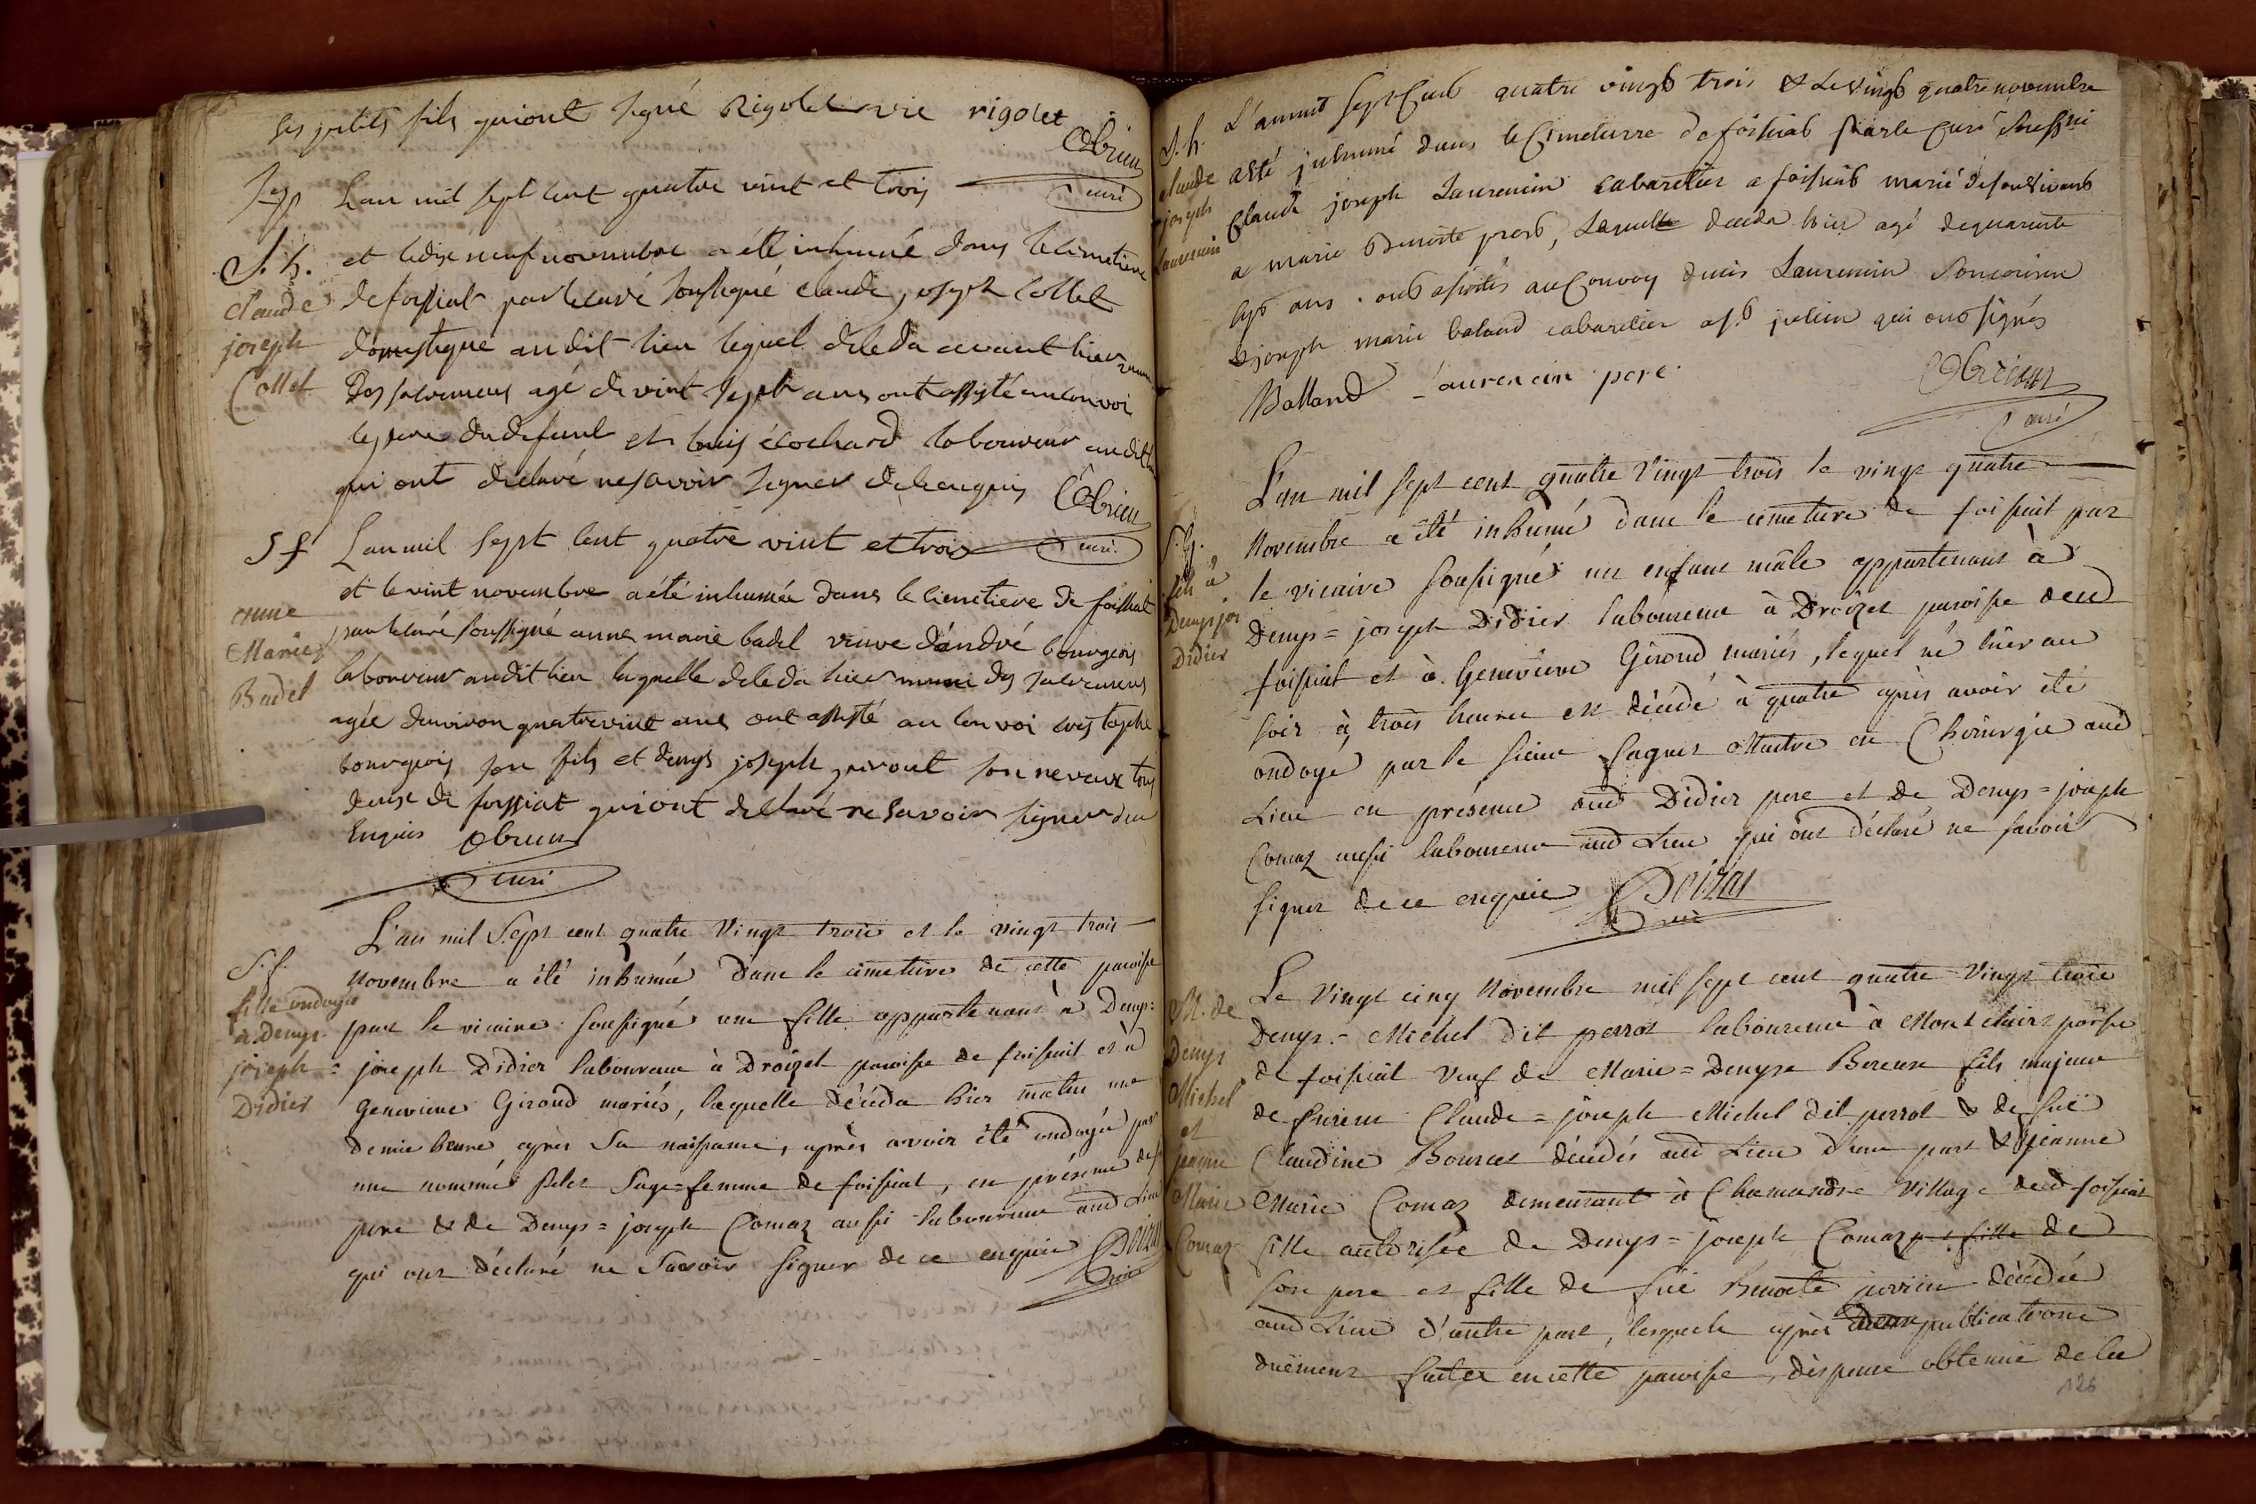 ses petits fils qui ont signé Rigolet vic rigolet
Obrieu
curé
L'an mil sept cent quatre vint et trois
S. h.
et le dix neuf novembre a été inhumé dans le cimetiere
claude
joseph
Collet
de foissiat par le curé soussigné claude joseph Collet
domestique audit lieu lequel deceda avant hier muni
des sacremens agé de vint sept ans ont assisté au convoi
les pere du defunt et louis écochard laboureur audit lieu
qui ont déclaré ne savoir signer de ce enquis Obrieu
curé
S f
L'an mil sept cent quatre vint et trois
anne
Marie
Badel
et le vint novembre a été inhumée dans le cimetiere de foissiat
par le curé soussigné anne marie badel veuve d'andré bourgeois
laboureur audit lieu laquelle deceda hier munie des sacremens
agée d'environ quatrevint ans ont assisté au convoi cristophe
bourgeois son fils et denys joseph son neveux tous
deux de foissiat qui ont declaré ne savoir signer de ce
enquis Obrieu
curé
S. f.
fille ondoyée
à Denys
joseph
Didier
L'an mil Sept cent quatre Vingt trois et le vingt trois
novembre a été inhumée dans le cimetiere de cette paroisse
par le vicaire soussigné une fille appartenant à Denys=
joseph Didier laboureur à Droizet paroisse de foissiat et à
Genevieve Giroud mariés, laquelle décéda hier matin une
demie heure après sa naissance, après avoir été ondoyée par
une nommée sage=femme de foissiat, en présence de
pere & de Denys=joseph Comaz aussi laboureur aud Lieu
qui ont déclaré ne Savoir signer de ce enquis Doizat
vic
S. h.
claude
joseph
Laurencin
L'an mil sept Cent quatre vingt trois & le vingt quatre novembre
a été inhumé dans le Cimetierre de foissiat par le Curé soussigné
Claude joseph Laurencin Cabaretier a foissiat marié de son vivant
a marie Benoite lequel deceda hier agé de quarente
sept ans . ont assistés au Convoy denis Laurencin Son
& joseph marie baland cabaretier a st julien qui ont signés
Balland Laurencin pere.
Obrieu
curé
S. G.
fils à
Denys jos
Didier
L'an mil sept cent quatre Vingt trois le vingt quatre
Novembre a été inhumé dans le cimetiere de foissiat par
le vicaire soussigné un enfant mâle appartenant à
Denys=joseph Didier laboureur à Droizet paroisse dud
foissiat et à Genevieve Giroud mariés, lequel né hier au
soir à trois heures est décédé à quatre après avoir été
ondoyé par le sieur Maitre en Chirurgie aud
Lieu en présence dud Didier pere et de Denys=joseph
Comaz aussi laboureur aud Lieu qui ont déclaré ne savoir
signer de ce enquis Doizat
vic
M. de
Denys
Michel
et
jeanne
Marie
Comaz
Le Vingt cinq Novembre mil sept cent quatre Vingt trois
Denys=Michel dit perrot laboureur à Montclair poisse
de foissiat Veuf de Marie=Denyse Bereur fils majeur
de furent Claude=joseph Michel dit perrot & de fuë
Claudine Bourcet décédés aud Lieu d'une part & jeanne
Marie Comaz demeurant à Chamandre Village dud foissiat
fille autorisée de Denys=joseph Comaz et fille de
son pere et fille de fuë Benoite décédée
aud Lieu d'autre part, lesquels après publications
duëment faites en cette paroisse, dispense obtenuë de la
126